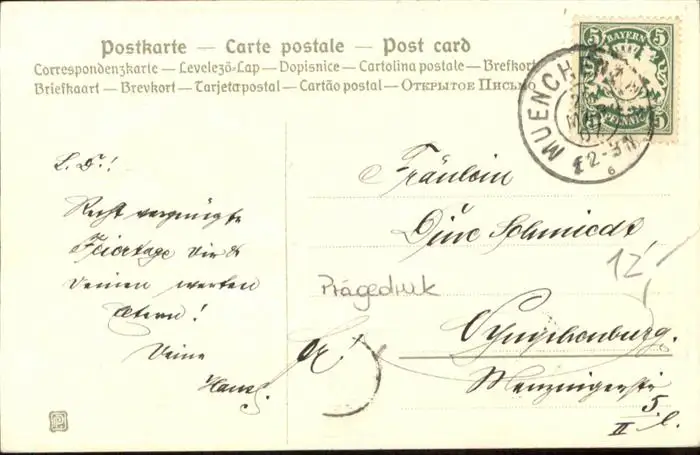 Postkarte — Carte postale — Post card
Correspondenzkarte — Levelező-Lap — Dopisnice — Cartolina postale — Brefkort
Briefkaart — Brevkort — Tarjeta postal — Cartão postal — Открытое Письмо
5 BAYERN 5
5 PFENNIG 5
MUENCHEN
12-3N
6
L. D.!
Recht vergnügte
Feiertage Dir &
Deinen werten
Eltern!
Deine
Fräulein
Schmiedt
12,
Prägedruk
Nymphenburg.
Menzingerstr
5
II l.